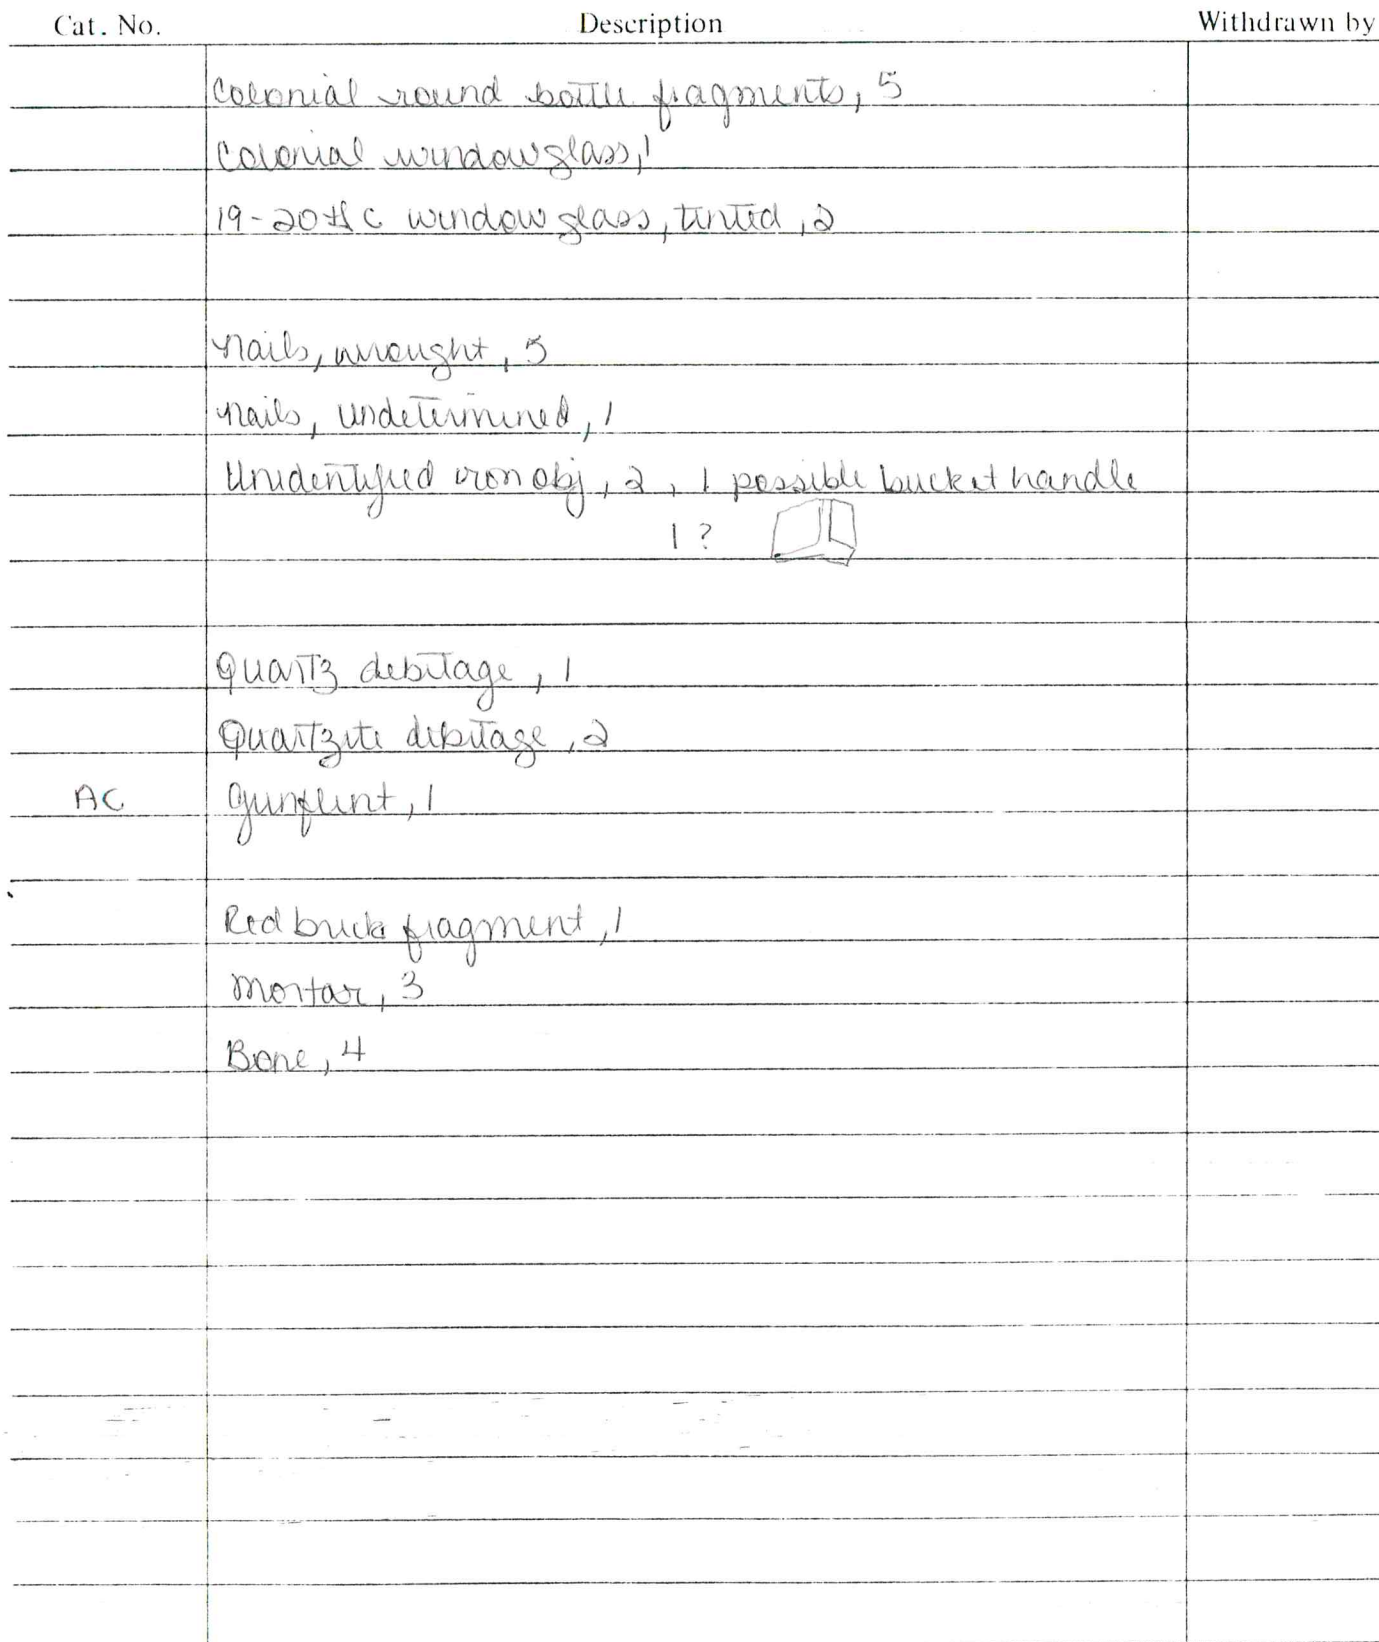 Cat. No. Description Withdrawn by
Colonial round bottle fragments, 5
Colonial window glass, 1
19-20th c window glass, tinted, 2
nails, wrought, 5
nails, undetermined, 1
Unidentified iron obj, 2, 1 possible bucket handle
1?
Quartz debitage, 1
Quartzite debitage, 2
AC Gunflint, 1
Red brick fragment, 1
Mortar, 3
Bone, 4